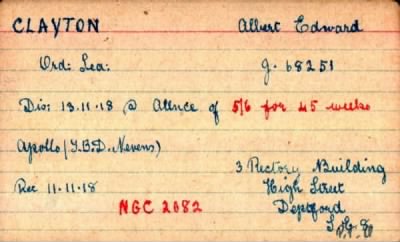 CLAYTON Albert Edward
Ord: Sea: J. 68251
Dis: 13.11.18 @ Allnce of 5/6 for 45 weeks
Apollo (T.B.D. Nevens)
3 Rectory Building
Rec 11-11-18 High Street
NGC 2082 Deptford
S.E.8